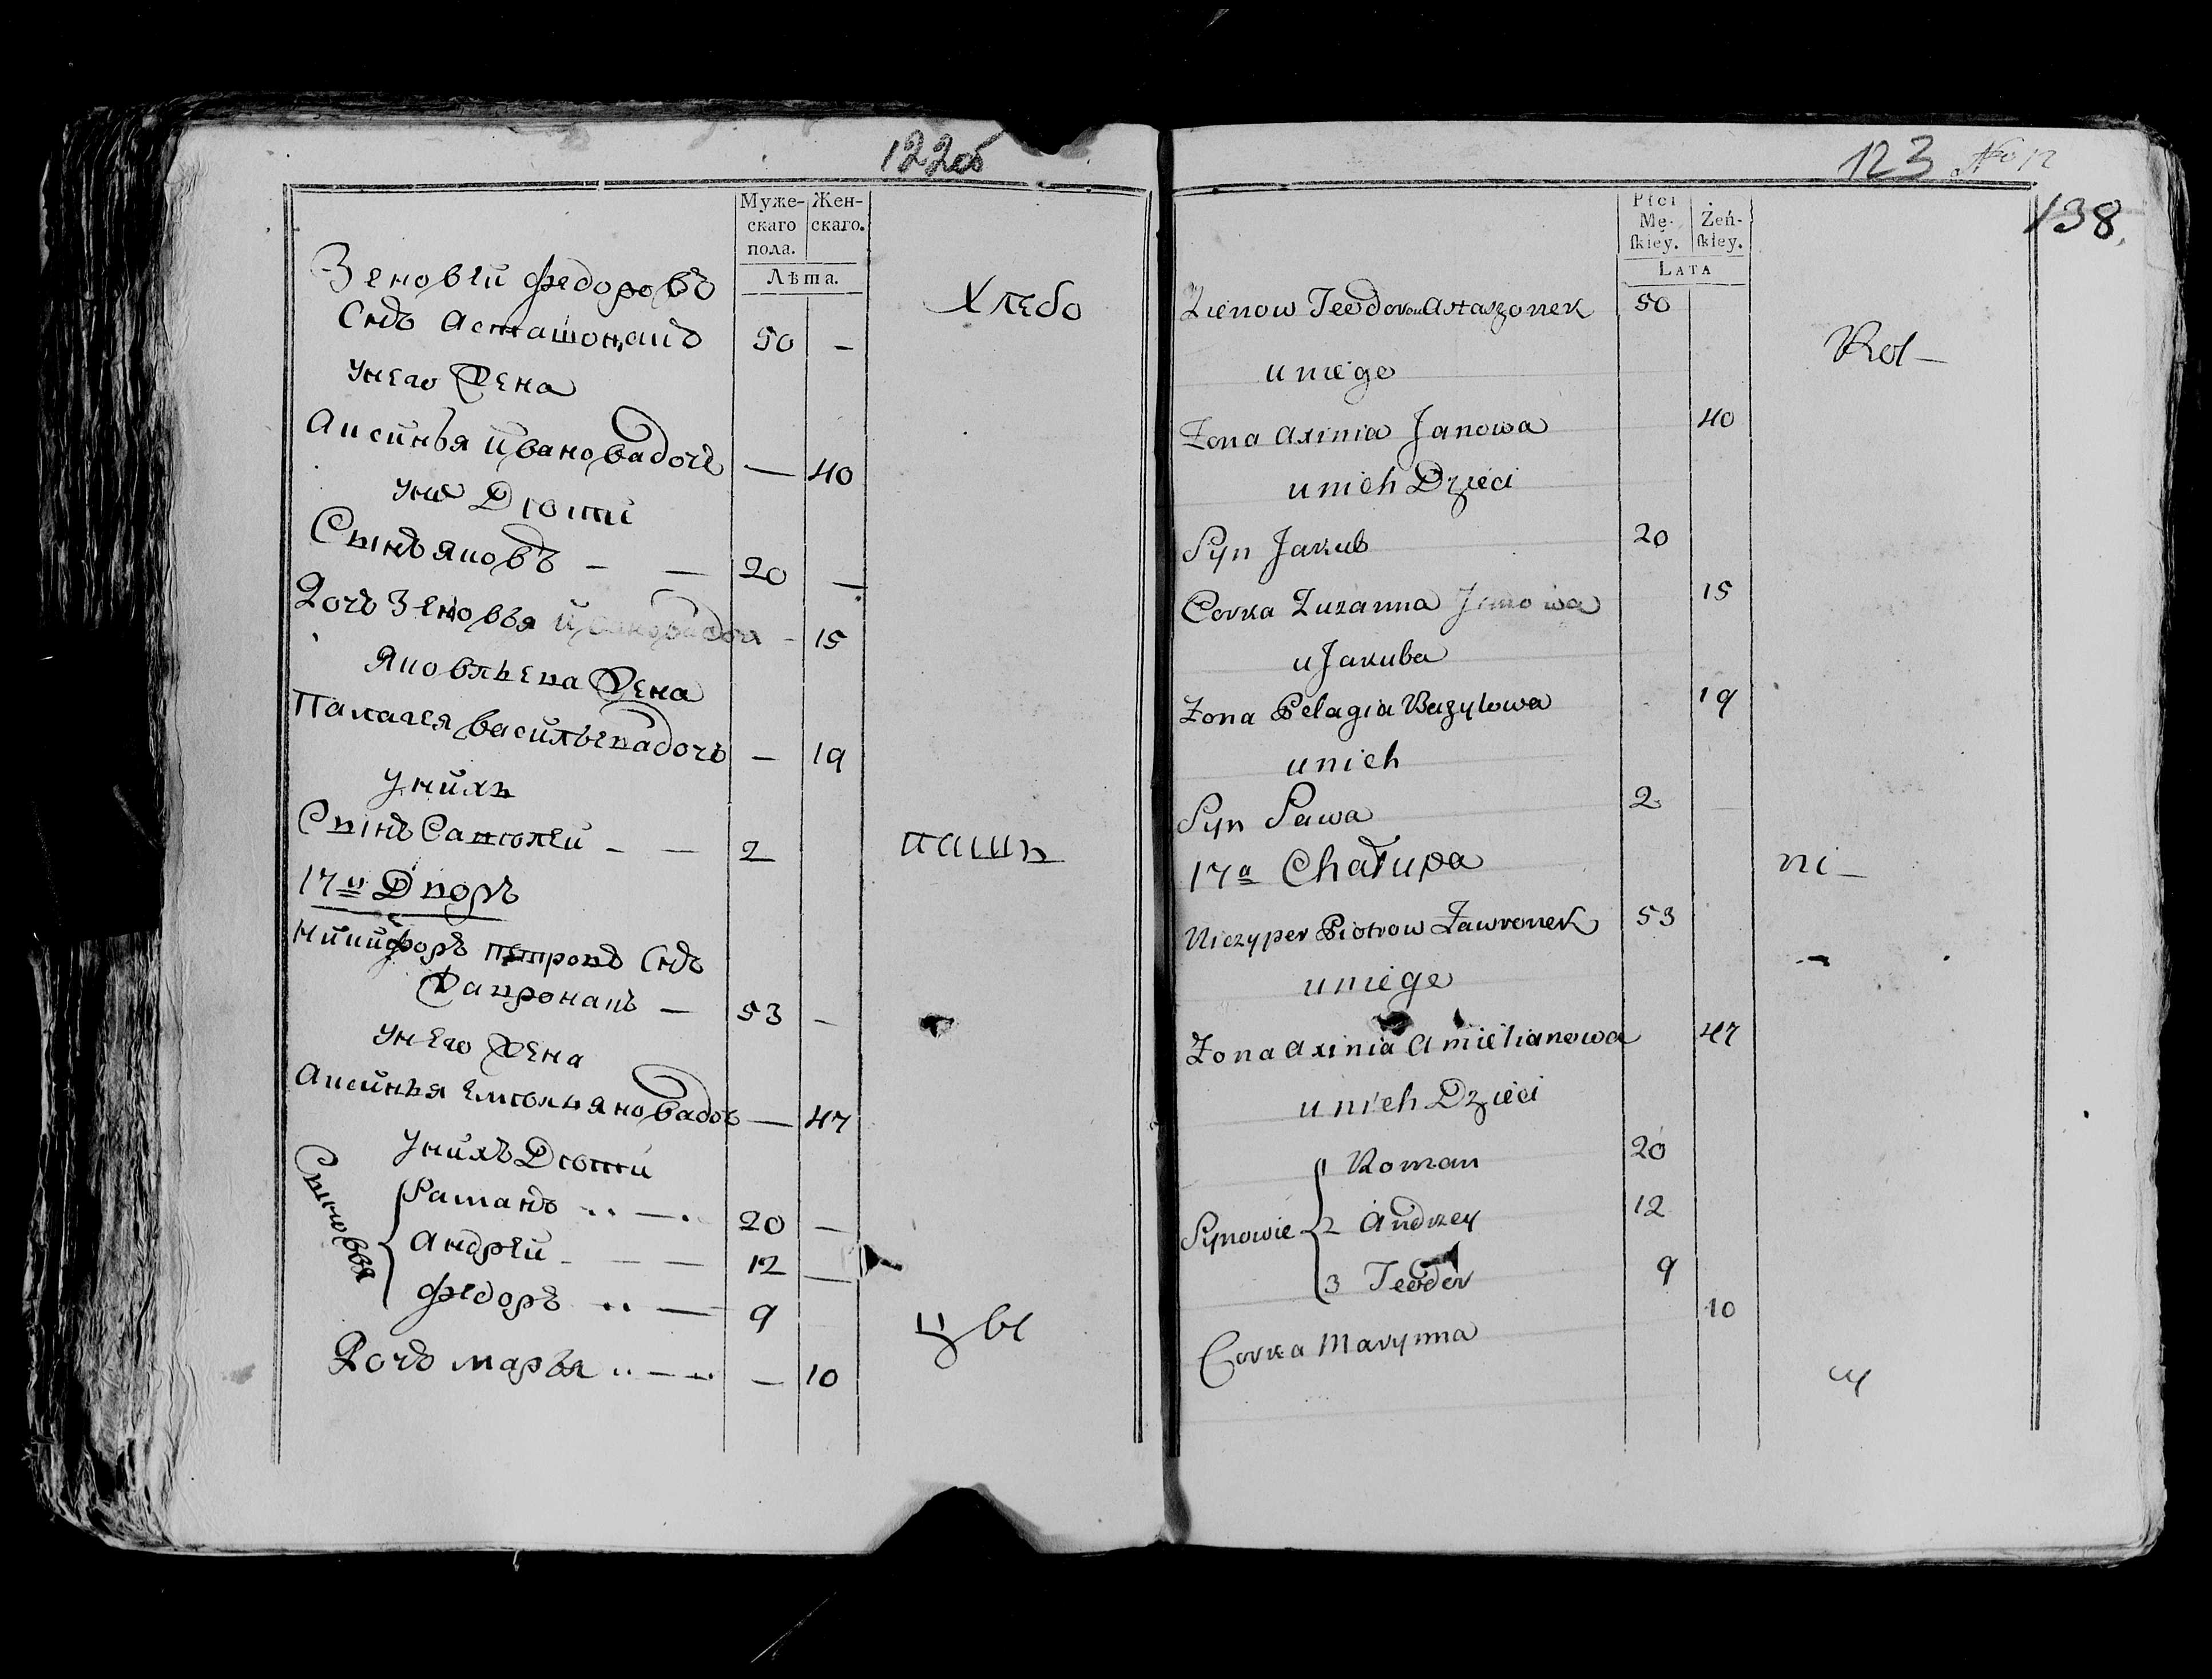 122об
Муже-
скаго
пола.
Жен-
скаго.
Лѣта.
Зеновей Федоровъ
Снъ Асташонакъ 50 —
Хлебо
Унего Жена
Аксинья Ивановадочь — 40
Уних Дѣти
Сынъ Яковъ — — 20 —
Дочь Зеновья Ивановадоч - 15
Яковлева Жена
Палагея Васильевадочь — 19
Унихъ
Сынъ Савелей - — 2
паш
17й Дворъ
Никифоръ Петровъ Снъ
Лавронакъ — 53 —
Унего Жена
Аксинья Емельяновадоч — 47
Унихъ Дѣти
Сыновья
Раманъ .. —. 20 —
Андрей - — — 12 —
Федоръ .. — 9
цы
Дочь Марья .. — .. — 10
123 No 12
138
Płci
Mę-
ſkiey.
Żeń-
ſkiey.
LATA
Zienow Teodorow Astaszonek 50
Rol —
u niego
Zona Axinia Janowa 40
u nich Dzieci
Syn Jakub 20
Corka Zuzanna Janowa 15
u Jakuba
Zona Pelagia Bazylowa 19
u nich
Syn Sawa 2
17a Chałupa
ni —
Niczyper Piotrow Ławronek 53
u niego
Zona Axinia Amielianowa 47
u nich Dzieci
1 Roman 20
Synowie 2 Andrzey 12
3 Teodor 9
Corka Marynna 10
cy